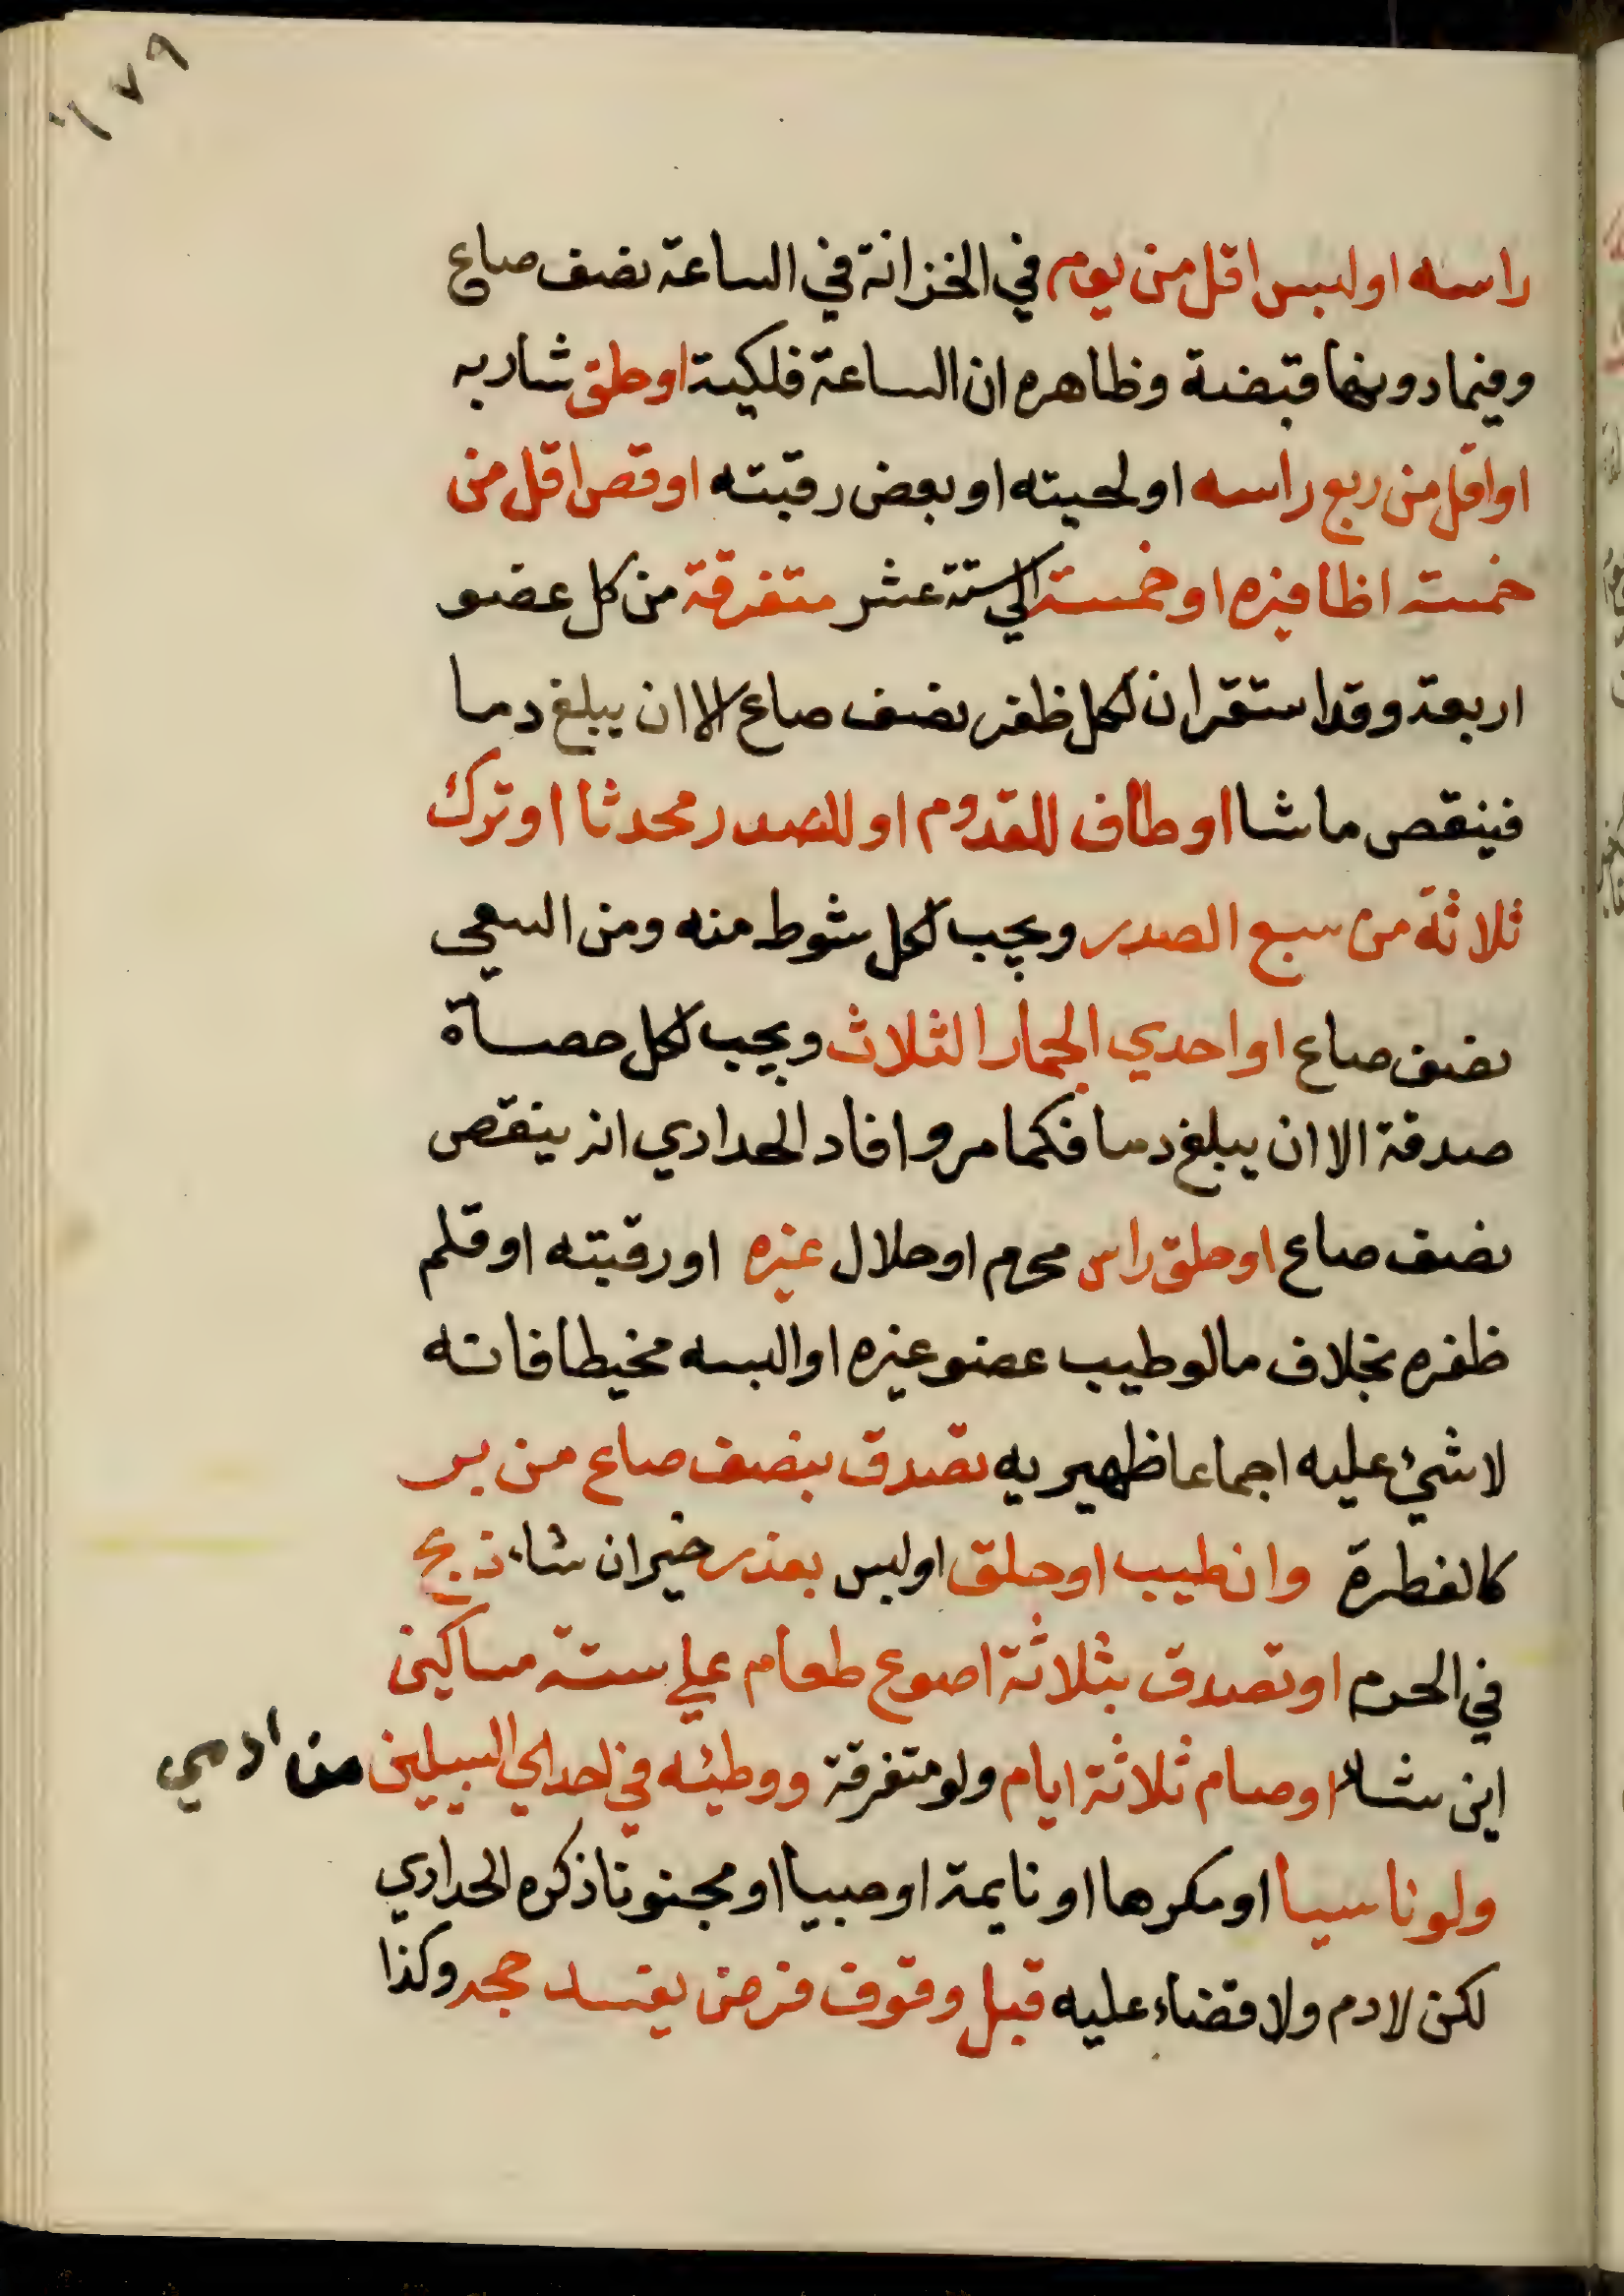 ١٧٩
راسه او لبس اقل من يوم في الخزانة في الساعة نصف صاع
وفيما دونها قبضة وظاهره ان الساعة فلكية او حلق شاربه
او اقل من ربع راسه او لحيته او بعض رقبته او قص اقل من
خمسة اظافيره او خمسة الي ستة عشر متفرقة من كل عضو
اربعة وقد استقر ان لكل ظفر نصف صاع الا ان يبلغ دما
فينقص ما شا او طاف للقدوم او للصدر محدثا او ترك
ثلاثة من سبع الصدر ويجب لكل شوط منه ومن السعي
نصف صاع او احدي الجمار الثلاث ويجب لكل حصاة
صدقة الا ان يبلغ دما فكما مر وافاد الحدادي انه ينقص
نصف صاع او حلق راس محرم او حلال غيره او رقبته او قلم
ظفره بخلاف ما لو طيب عضو غيره او البسه مخيطا فانه
لا شيء عليه اجماعا ظهيريه تصدق بنصف صاع من بر
كالفطرة وان طيب او حلق او لبس بعذر خير ان شاء ذبح
في الحرم او تصدق بثلاثة اصوع طعام علي ستة مساكين
اين شاء او صام ثلاثة ايام ولو متفرقة ووطئه في احدي السبيلين من ادمي
ولو ناسيا او مكرها او نايمة او صبيا او مجنونا ذكره الحدادي
لكن لا دم ولا قضاء عليه قبل وقوف فرض يفسد حجه وكذا